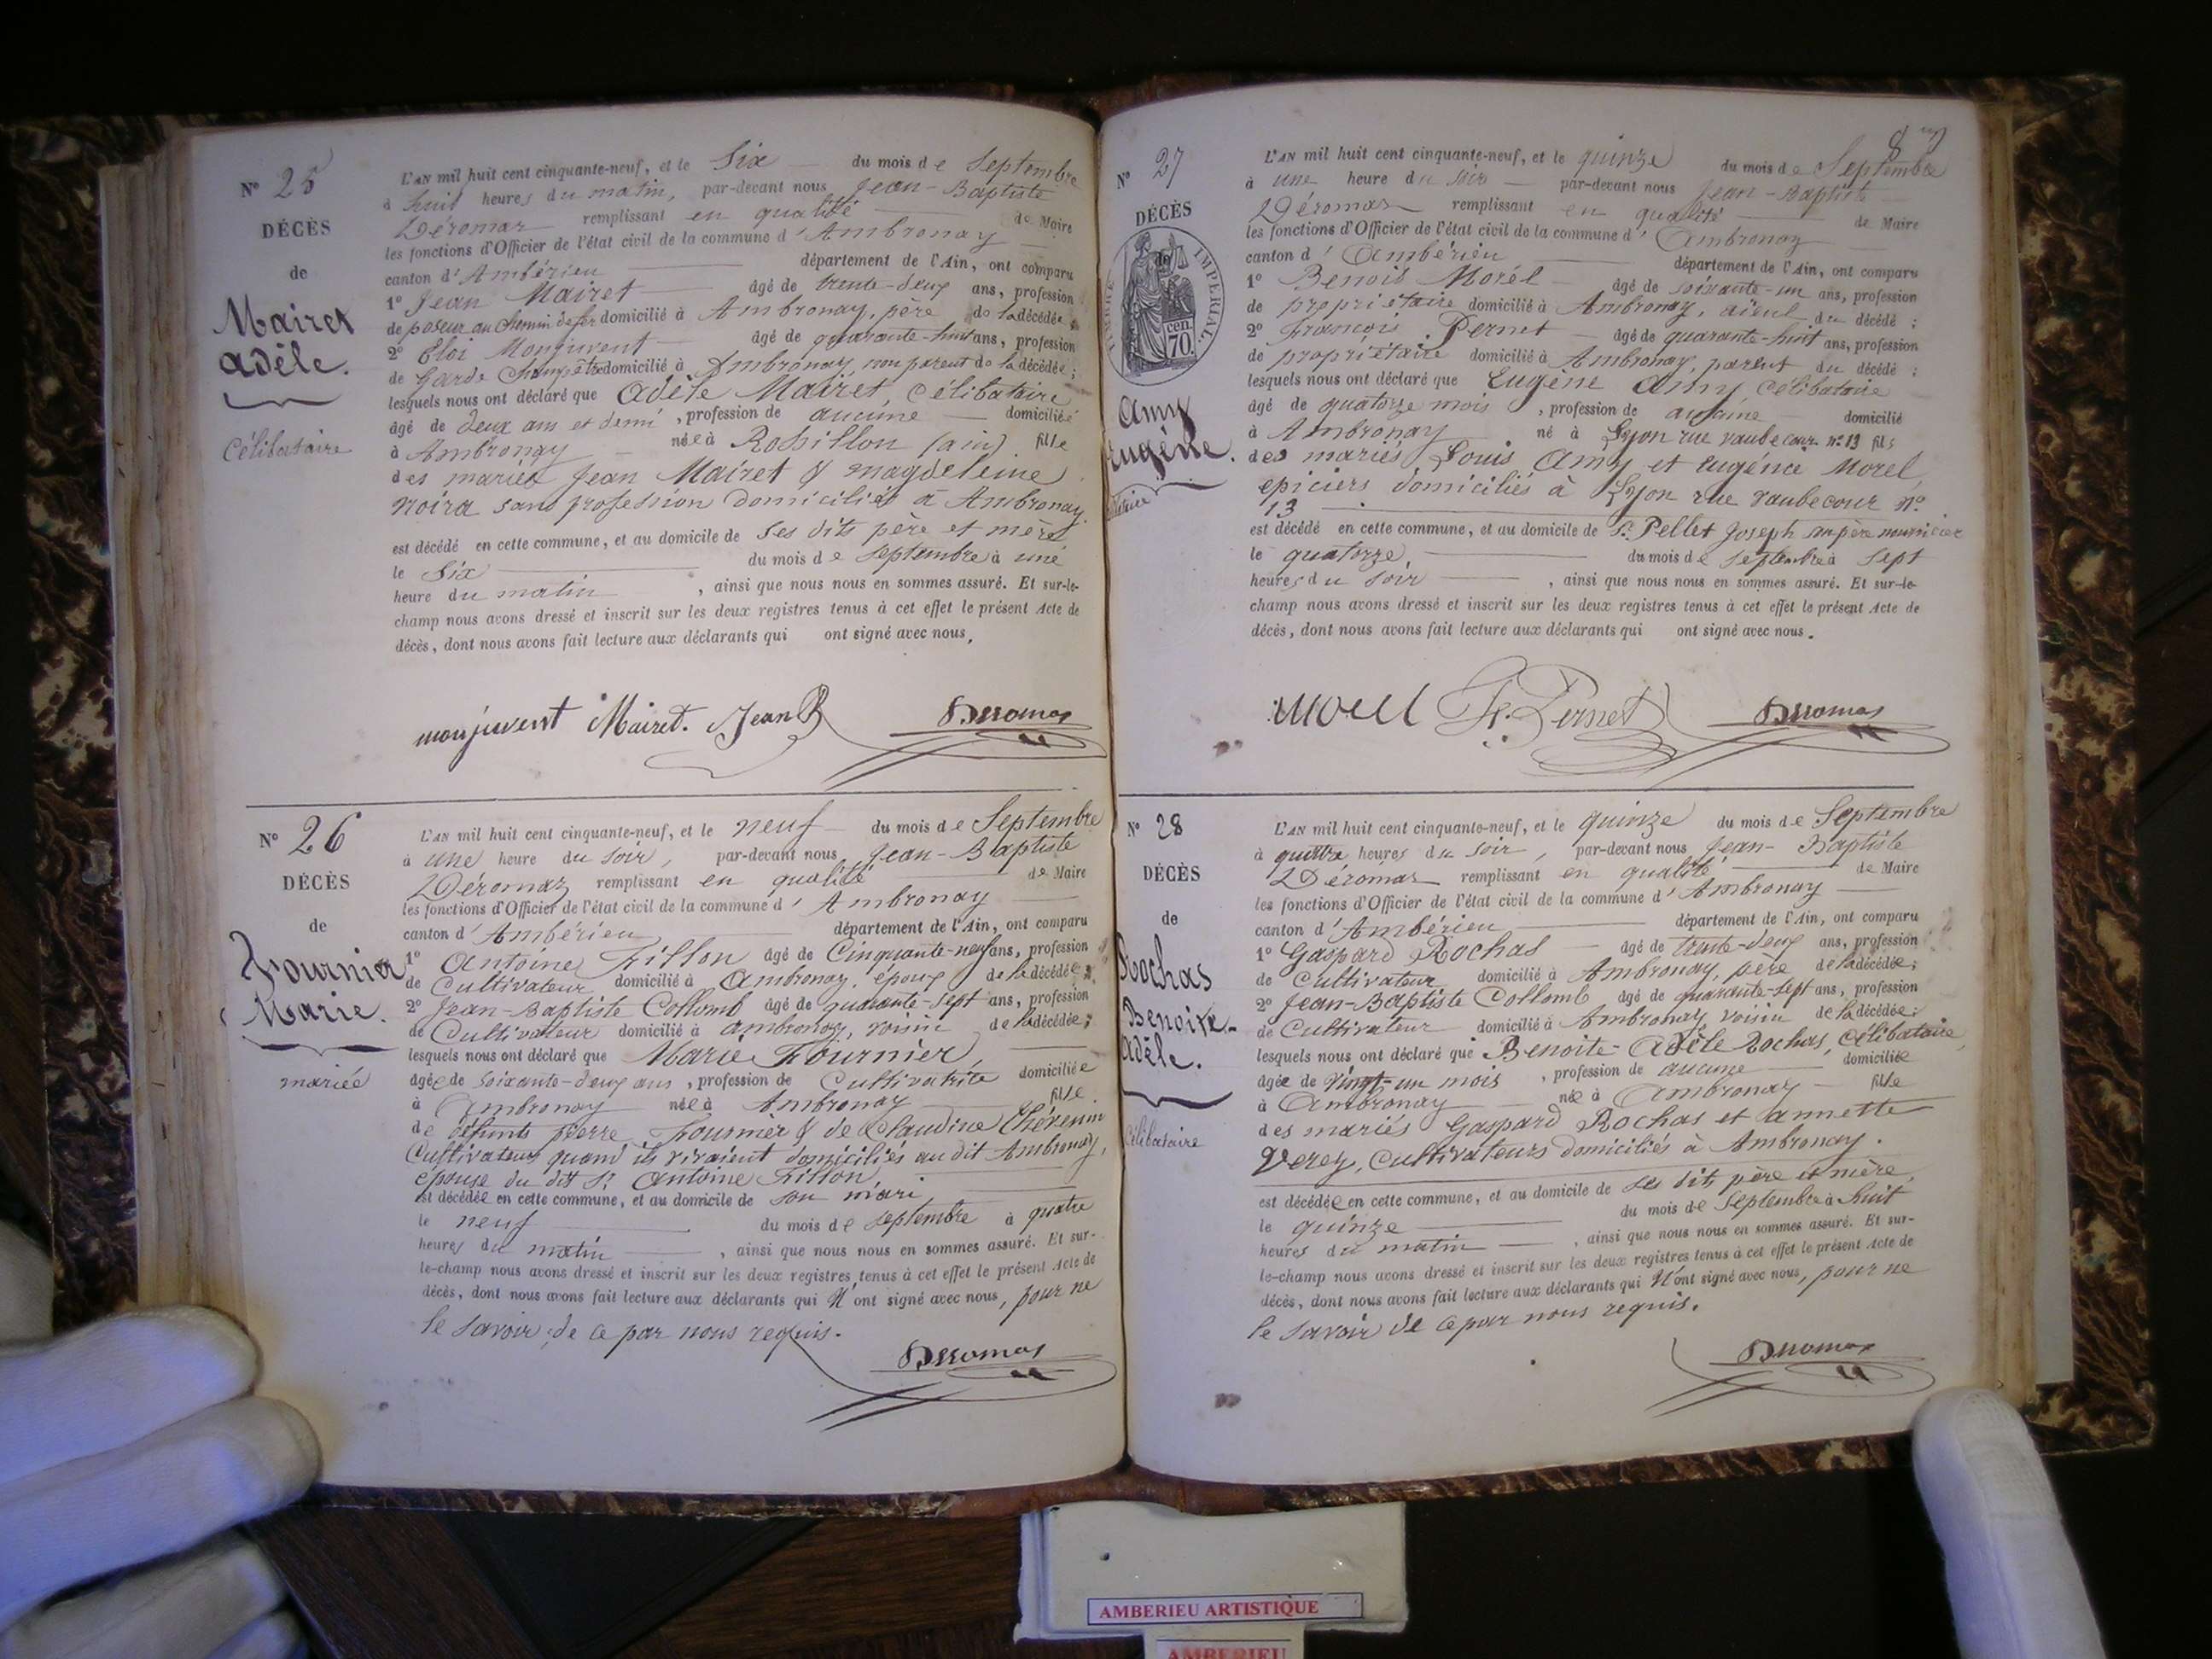 N° 25
DÉCÈS
de
Mairet
Adèle.
Célibataire
L'AN mil huit cent cinquante-neuf, et le Six du mois de Septembre
à huit heures du matin, par-devant nous Jean-Baptiste
Déromas remplissant en qualité de Maire
les fonctions d'Officier de l'état civil de la commune d'Ambronay
canton d'Ambérieu département de l'Ain, ont comparu
1° Jean Mairet âgé de trente-deux ans, profession
de poseur au chemin de fer domicilié à Ambronay, père de la décédée
2° Eloi Monjuvent âgé de quarante-huit ans, profession
de Garde Champêtre domicilié à Ambronay, non parent de la décédée;
lesquels nous ont déclaré que Adèle Mairet, Célibataire
âgé de deux ans et demi, profession de aucune domiciliée
à Ambronay née à Robillon (ain) fille
des mariés Jean Mairet & Magdeleine
Noira sans profession domiciliés à Ambronay.
est décédé en cette commune, et au domicile de Ses dits père et mère
le Six du mois de Septembre à une
heure du matin, ainsi que nous nous en sommes assuré. Et sur-le-
champ nous avons dressé et inscrit sur les deux registres tenus à cet effet le présent Acte de
décès, dont nous avons fait lecture aux déclarants qui ont signé avec nous.
monjuvent Mairet. Jean B Deromas
N° 26
DÉCÈS
de
Fournier
Marie.
mariée
L'AN mil huit cent cinquante-neuf, et le neuf du mois de Septembre
à une heure du soir, par-devant nous Jean-Baptiste
Déromas remplissant en qualité de Maire
les fonctions d'Officier de l'état civil de la commune d'Ambronay
canton d'Ambérieu département de l'Ain, ont comparu
1° Antoine Fillon âgé de Cinquante-neuf ans, profession
de Cultivateur domicilié à Ambronay, époux de la décédée;
2° Jean-Baptiste Collomb âgé de quarante-sept ans, profession
de Cultivateur domicilié à Ambronay, voisin de la décédée;
lesquels nous ont déclaré que Marie Fournier,
âgée de soixante-deux ans, profession de Cultivatrice domiciliée
à Ambronay née à Ambronay fille
de défunts pierre Fournier & de Claudine
Cultivateurs quand ils vivaient domiciliés au dit Ambronay,
épouse du dit Sr Antoine Fillon,
est décédée en cette commune, et au domicile de son mari,
le neuf du mois de Septembre à quatre
heures du matin, ainsi que nous nous en sommes assuré. Et sur-
le-champ nous avons dressé et inscrit sur les deux registres tenus à cet effet le présent Acte de
décès, dont nous avons fait lecture aux déclarants qui N'ont signé avec nous, pour ne
le savoir, de ce par nous requis.
Deromas
87
N° 27
DÉCÈS
de
TIMBRE IMPÉRIAL
70 cen.
Amy
Eugène.
L'AN mil huit cent cinquante-neuf, et le quinze du mois de Septembre
à une heure du soir par-devant nous Jean-Baptiste
Déromas remplissant en qualité de Maire
les fonctions d'Officier de l'état civil de la commune d'Ambronay
canton d'Ambérieu département de l'Ain, ont comparu
1° Benoit Morel âgé de soixante-un ans, profession
de propriétaire domicilié à Ambronay, aïeul du décédé;
2° François Pernet âgé de quarante-huit ans, profession
de propriétaire domicilié à Ambronay, parent du décédé;
lesquels nous ont déclaré que Eugène Amy célibataire
âgé de quatorze mois, profession de aucune domicilié
à Ambronay né à Lyon rue vaubecour n° 13 fils
des mariés Louis Amy et Eugénie Morel,
épiciers domiciliés à Lyon rue vaubecour n°
13
est décédé en cette commune, et au domicile de Sr Pellet Joseph son père nourricier
le quatorze, du mois de Septembre à sept
heures du soir, ainsi que nous nous en sommes assuré. Et sur-le-
champ nous avons dressé et inscrit sur les deux registres tenus à cet effet le présent Acte de
décès, dont nous avons fait lecture aux déclarants qui ont signé avec nous.
Morel Fs. Pernet Deromas
N° 28
DÉCÈS
de
Rochas
Benoite-
Adèle.
Célibataire
L'AN mil huit cent cinquante-neuf, et le quinze du mois de Septembre
à quatre heures du soir, par-devant nous Jean-Baptiste
Déromas remplissant en qualité de Maire
les fonctions d'Officier de l'état civil de la commune d'Ambronay
canton d'Ambérieu département de l'Ain, ont comparu
1° Gaspard Rochas âgé de trente-deux ans, profession
de Cultivateur domicilié à Ambronay, père de la décédée;
2° Jean-Baptiste Collomb âgé de quarante-sept ans, profession
de Cultivateur domicilié à Ambronay voisin de la décédée;
lesquels nous ont déclaré que Benoite-Adèle Rochas, Célibataire,
âgée de vingt-un mois, profession de aucune domiciliée
à Ambronay née à Ambronay fille
des mariés Gaspard Rochas et annette
Verey, Cultivateurs domiciliés à Ambronay.
est décédée en cette commune, et au domicile de ses dits père et mère,
le quinze du mois de Septembre à huit
heures du matin, ainsi que nous nous en sommes assuré. Et sur-
le-champ nous avons dressé et inscrit sur les deux registres tenus à cet effet le présent Acte de
décès, dont nous avons fait lecture aux déclarants qui N'ont signé avec nous, pour ne
le savoir de ce par nous requis.
Deromas
AMBERIEU ARTISTIQUE
AMBERIEU